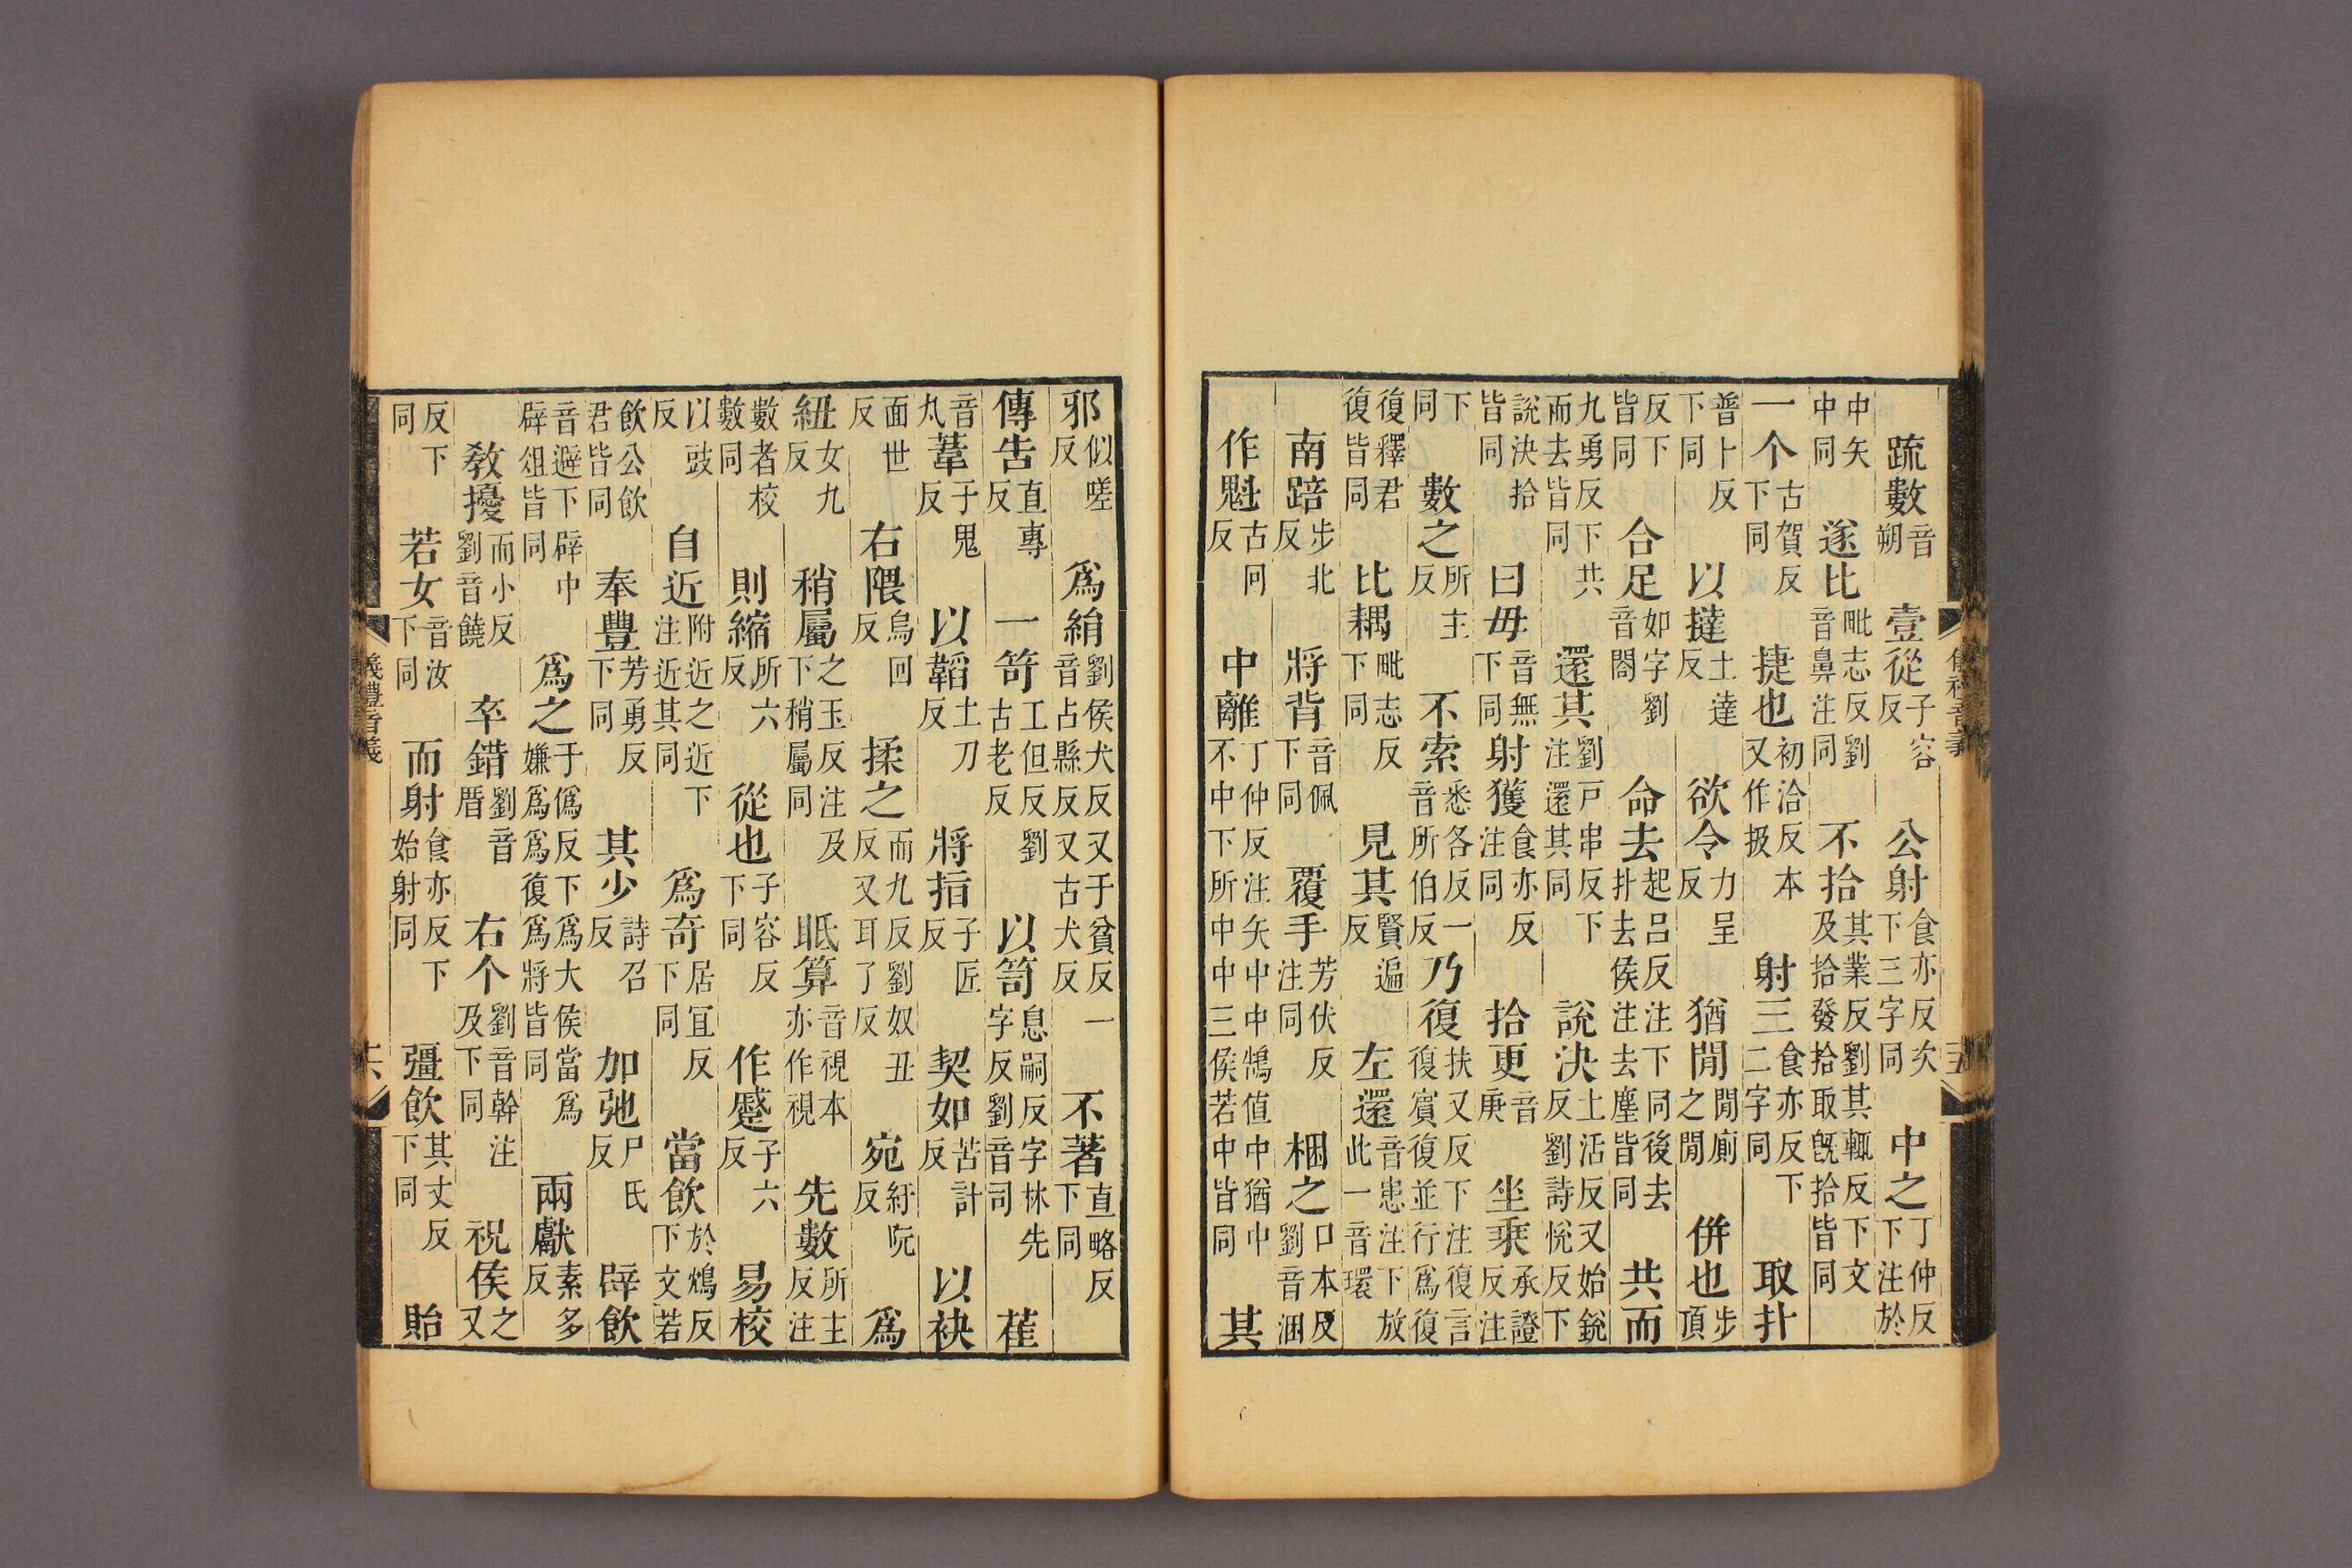 疏數音朔 壹從子容反 公射食亦反次下三字同 中之丁仲反下注於
中矢中同 遂比毗志反劉音鼻注同 不拾其業反劉其輒反下文及拾發拾取旣拾皆同
一个古賀反下同 捷也初洽反本又作扱 射三食亦反下二字同 取扑
普卜反下同 以撻土達反 欲令力呈反 猶閒閒廁之閒 倂也步頂
反下皆同 合足如字劉音閤 命去起呂反注下同後去扑去侯注去塵皆同 共而
九勇反下共而去皆同 還其劉戶串反下注還其同 說決土活反又始銳反劉詩悅反下
說決拾皆同 曰毋音無下同 射獲食亦反注同 拾更音庚 坐乘承證反注
下同 數之所主反 不索悉各反一音所伯反 乃復扶又反下注復言復賓復並行爲復
復釋君復皆同 比耦毗志反下同 見其賢遍反 左還音患注下放此一音環
南踣步北反 將背音佩下同 覆手芳伏反注同 梱之口本反劉音涃
作魁古冋反 中離丁仲反注矢中中鵠值中猶中不中下所中中三侯若中皆同 其
邪似嗟反 爲絹劉侯犬反又于貧反一音占縣反又古犬反 不著直略反下同
傳告直專反 一笴工但反劉古老反 以笥息嗣反字林先字反劉音司 萑
音丸 葦于鬼反 以韜土刀反 將指子匠反 契如苦計反 以袂
面世反 右隈烏回反 揉之而九反劉奴丑反又耳了反 宛紆阮反 爲
紐女九反 稍屬之玉反注及下稍屬同 眂算音視本亦作視 先數所主反注
數者校數同 則縮所六反 從也子容反下同 作蹙子六反 易校
以豉反 自近附近之近下注近其同 爲奇居宜反下同 當飲於鴆反下文若
飲公飲君皆同 奉豐芳勇反下同 其少詩召反 加弛尸氏反 辟飲
音避下辟巾辟俎皆同 爲之于僞反下爲大侯當爲嫌爲爲復爲將皆同 兩獻素多反
教擾而小反劉音饒 卒錯劉音厝 右个劉音幹注及下同 祝侯之又
反下同 若女音汝下同 而射食亦反下始射同 彊飲其丈反下同 貽
儀禮音義